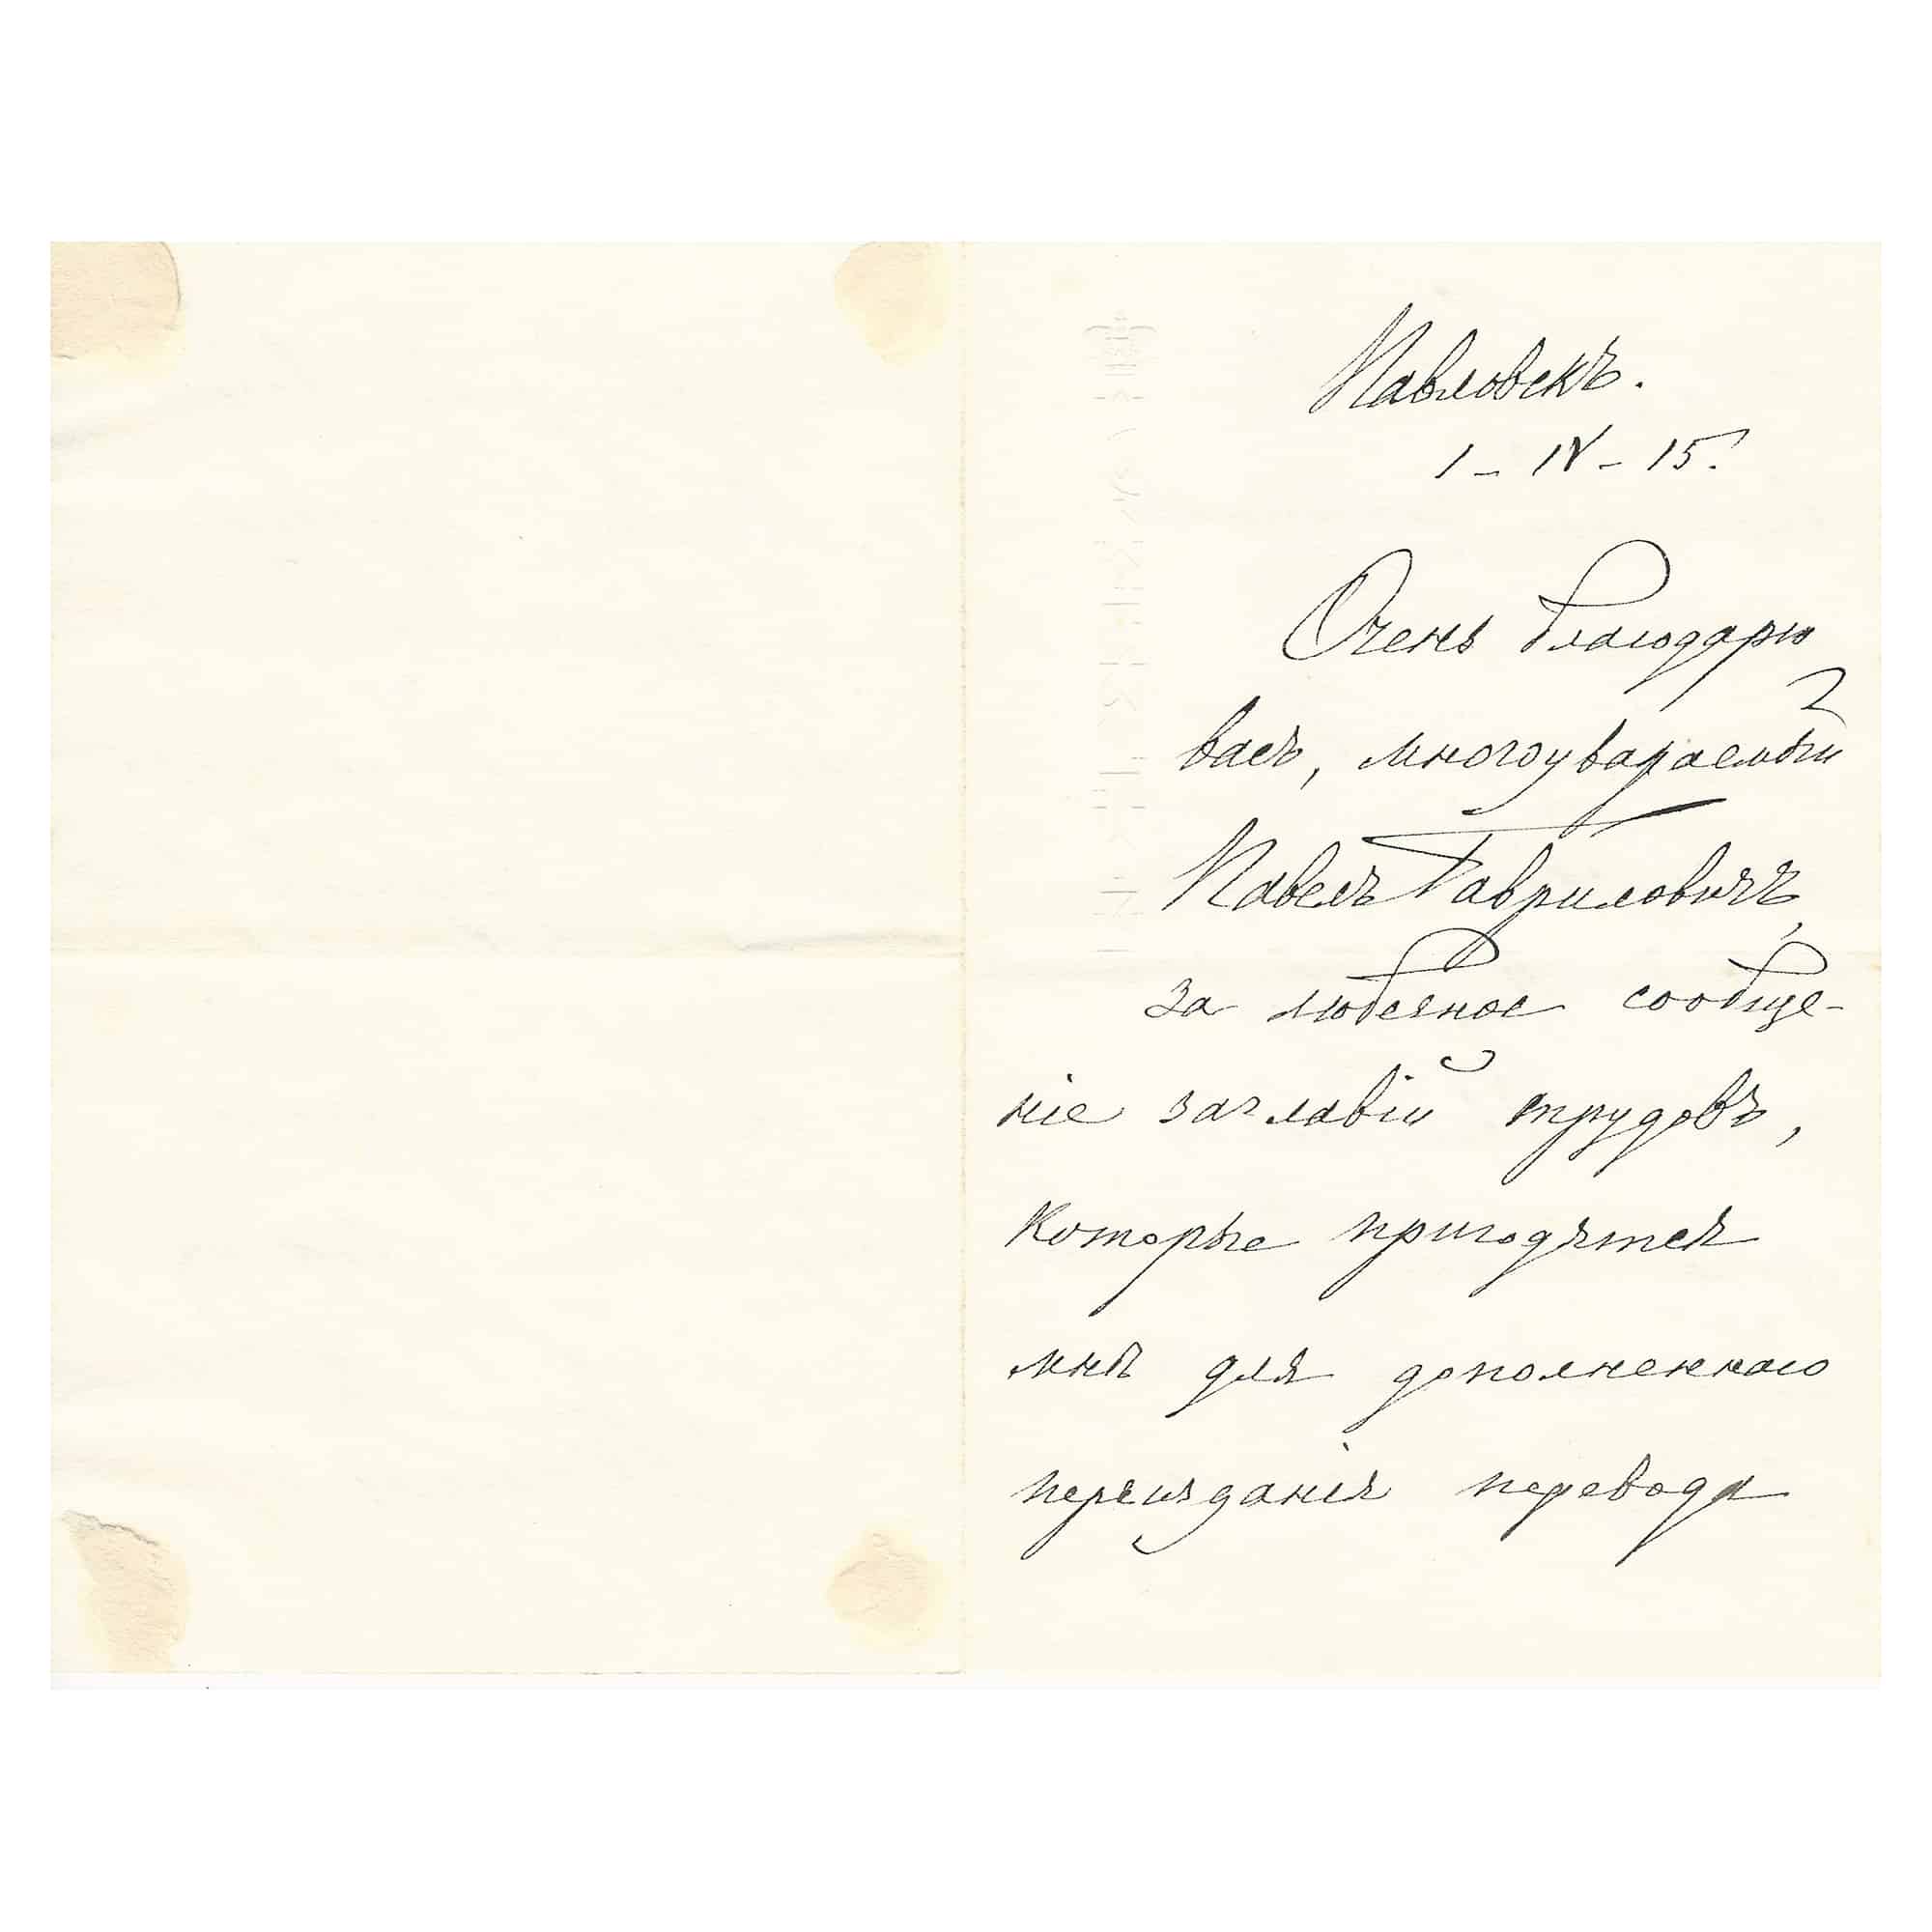 Павловскъ.
1 - IV - 15.
Очень благодарю
васъ, многоуважаемый
Павелъ Гавриловичъ,
за любезное сообще-
ніе заглавій трудовъ,
которые пригодятся
мнѣ для дополненнаго
переизданія перевода